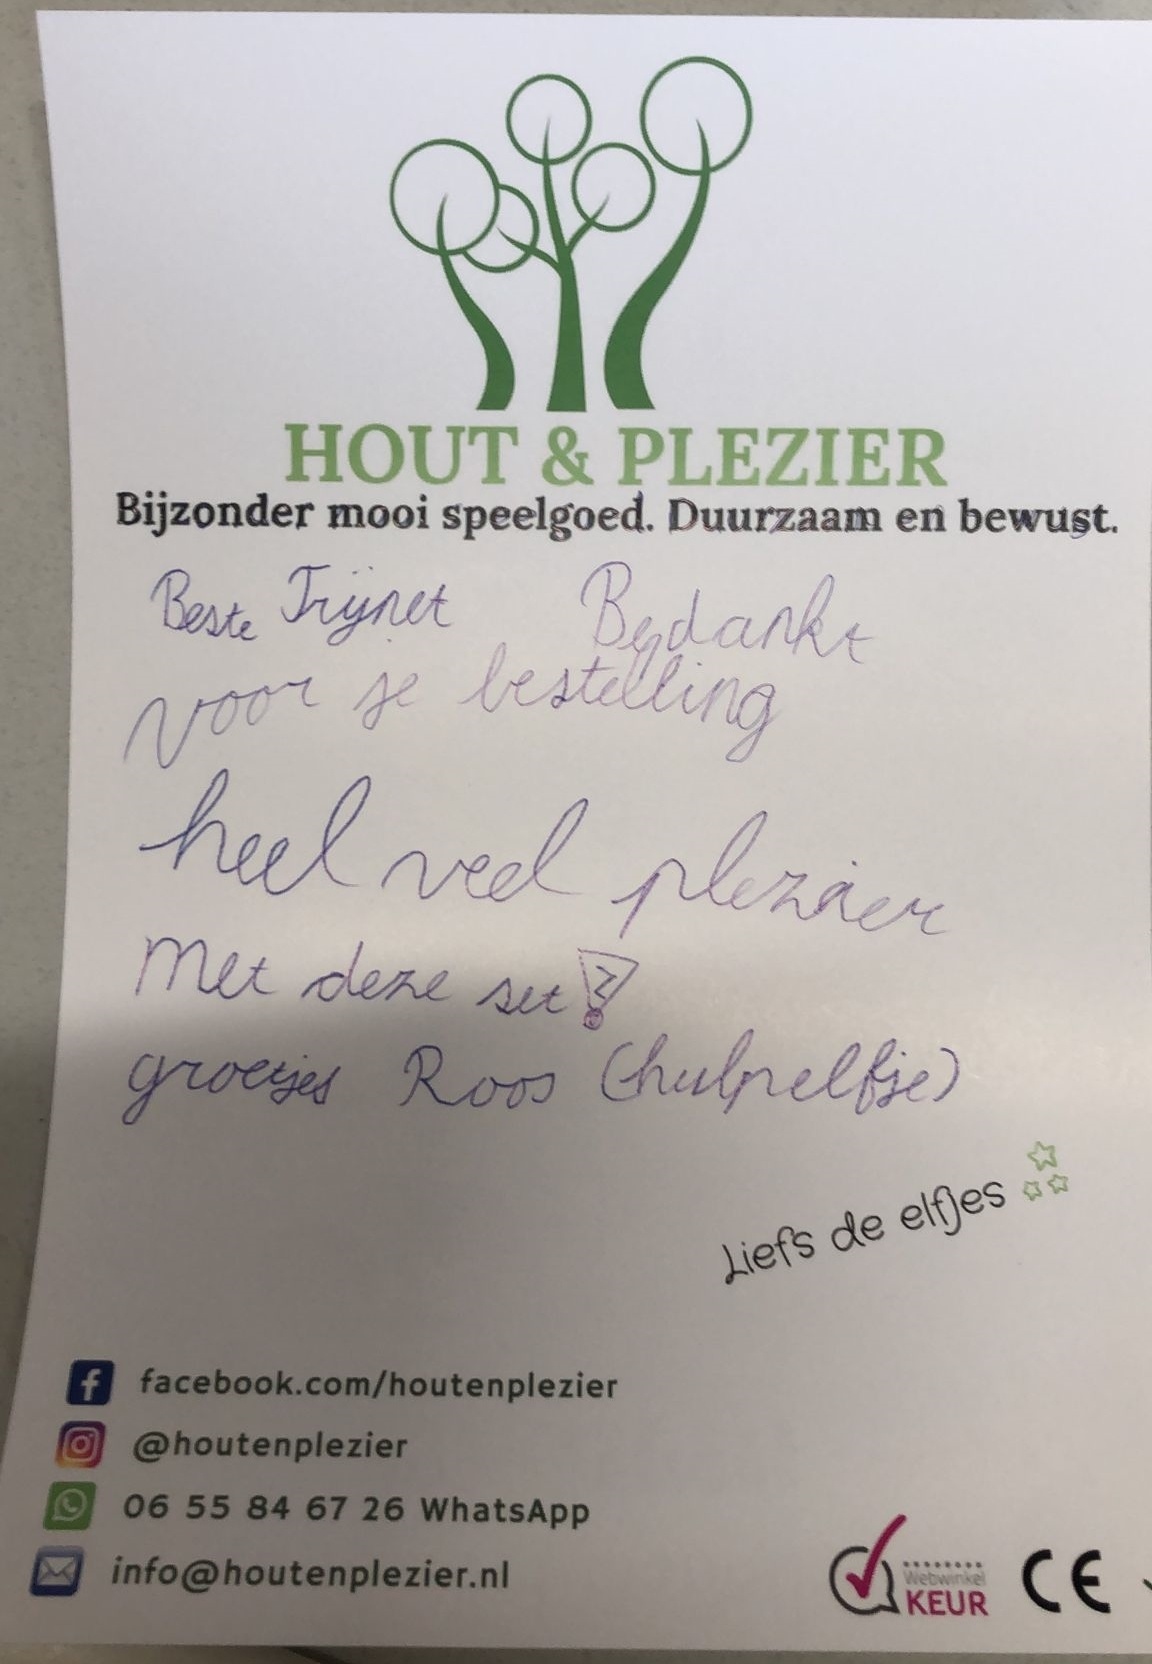 HOUT & PLEZIER
Bijzonder mooi speelgoed. Duurzaam en bewust.
Beste Trijnet Bedankt
voor je bestelling
heel veel plezier
Met deze set!
groetjes Roos (hulpelfje)
Liefs de elfjes
facebook.com/houtenplezier
@houtenplezier
06 55 84 67 26 WhatsApp
info@houtenplezier.nl
Webwinkel
KEUR
CE